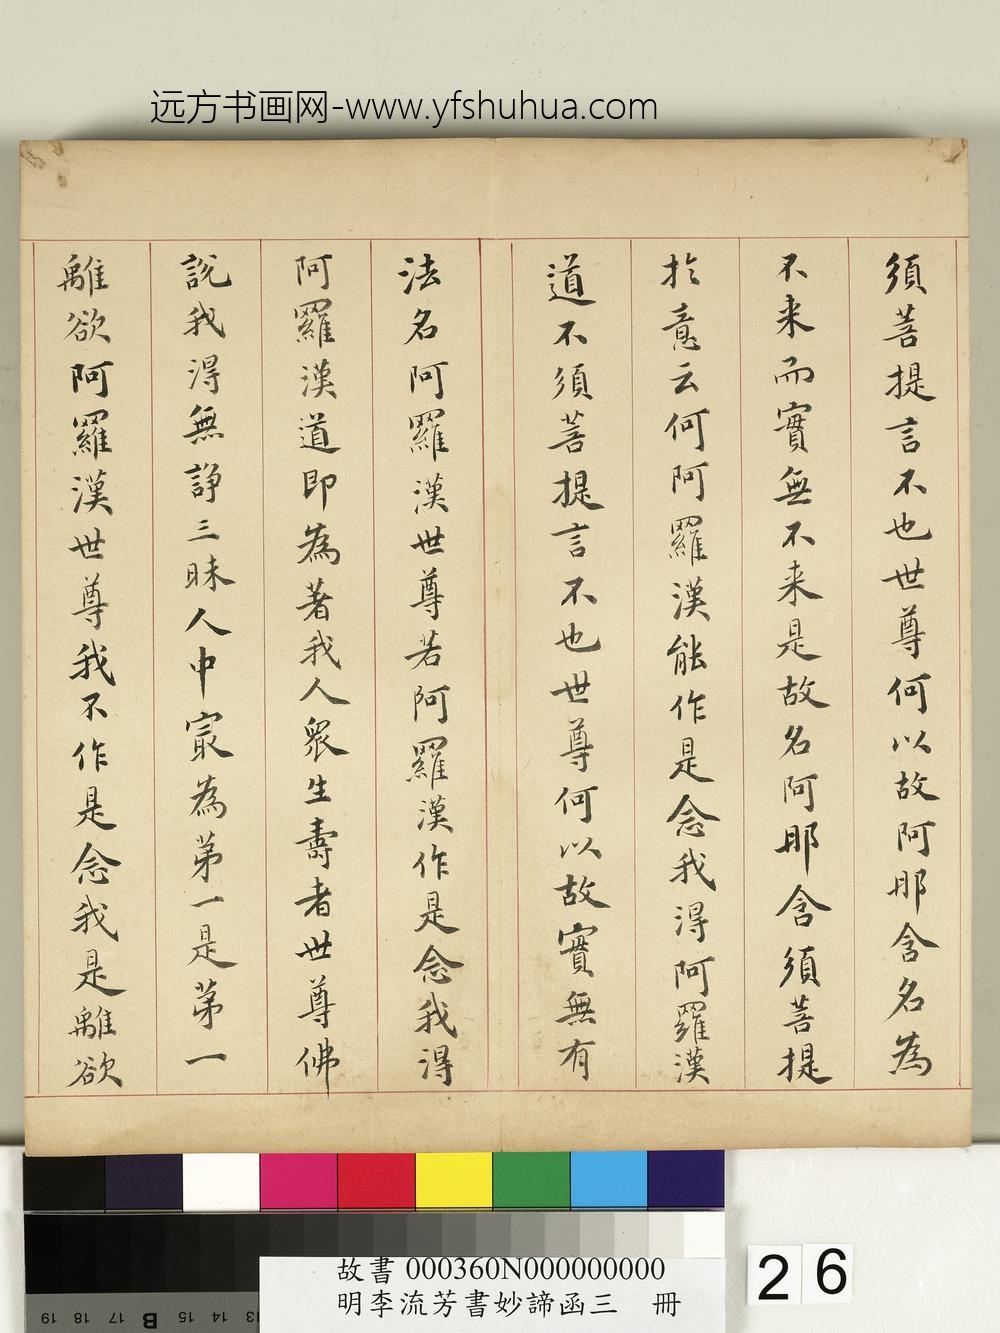 远方书画网-www.yfshuhua.com
須菩提言不也世尊何以故阿那含名為
不来而實無不来是故名阿那含須菩提
扵意云何阿羅漢能作是念我得阿羅漢
道不須菩提言不也世尊何以故實無有
法名阿羅漢世尊若阿羅漢作是念我得
阿羅漢道即為著我人衆生壽者世尊佛
説我得無諍三昧人中冣為苐一是苐一
離欲阿羅漢世尊我不作是念我是離欲
19 18 17 B 15 14 13
故書 000360N000000000
明李流芳書妙諦函三 冊
26